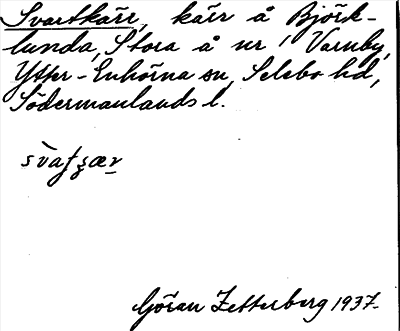 Svartkärr, kärr å Björk-
lunda, Stora å nr 1 Varnby,
Ytter-Enhörna sn, Selebo hd,
Södermanlands l.
Göran Zetterberg 1937.